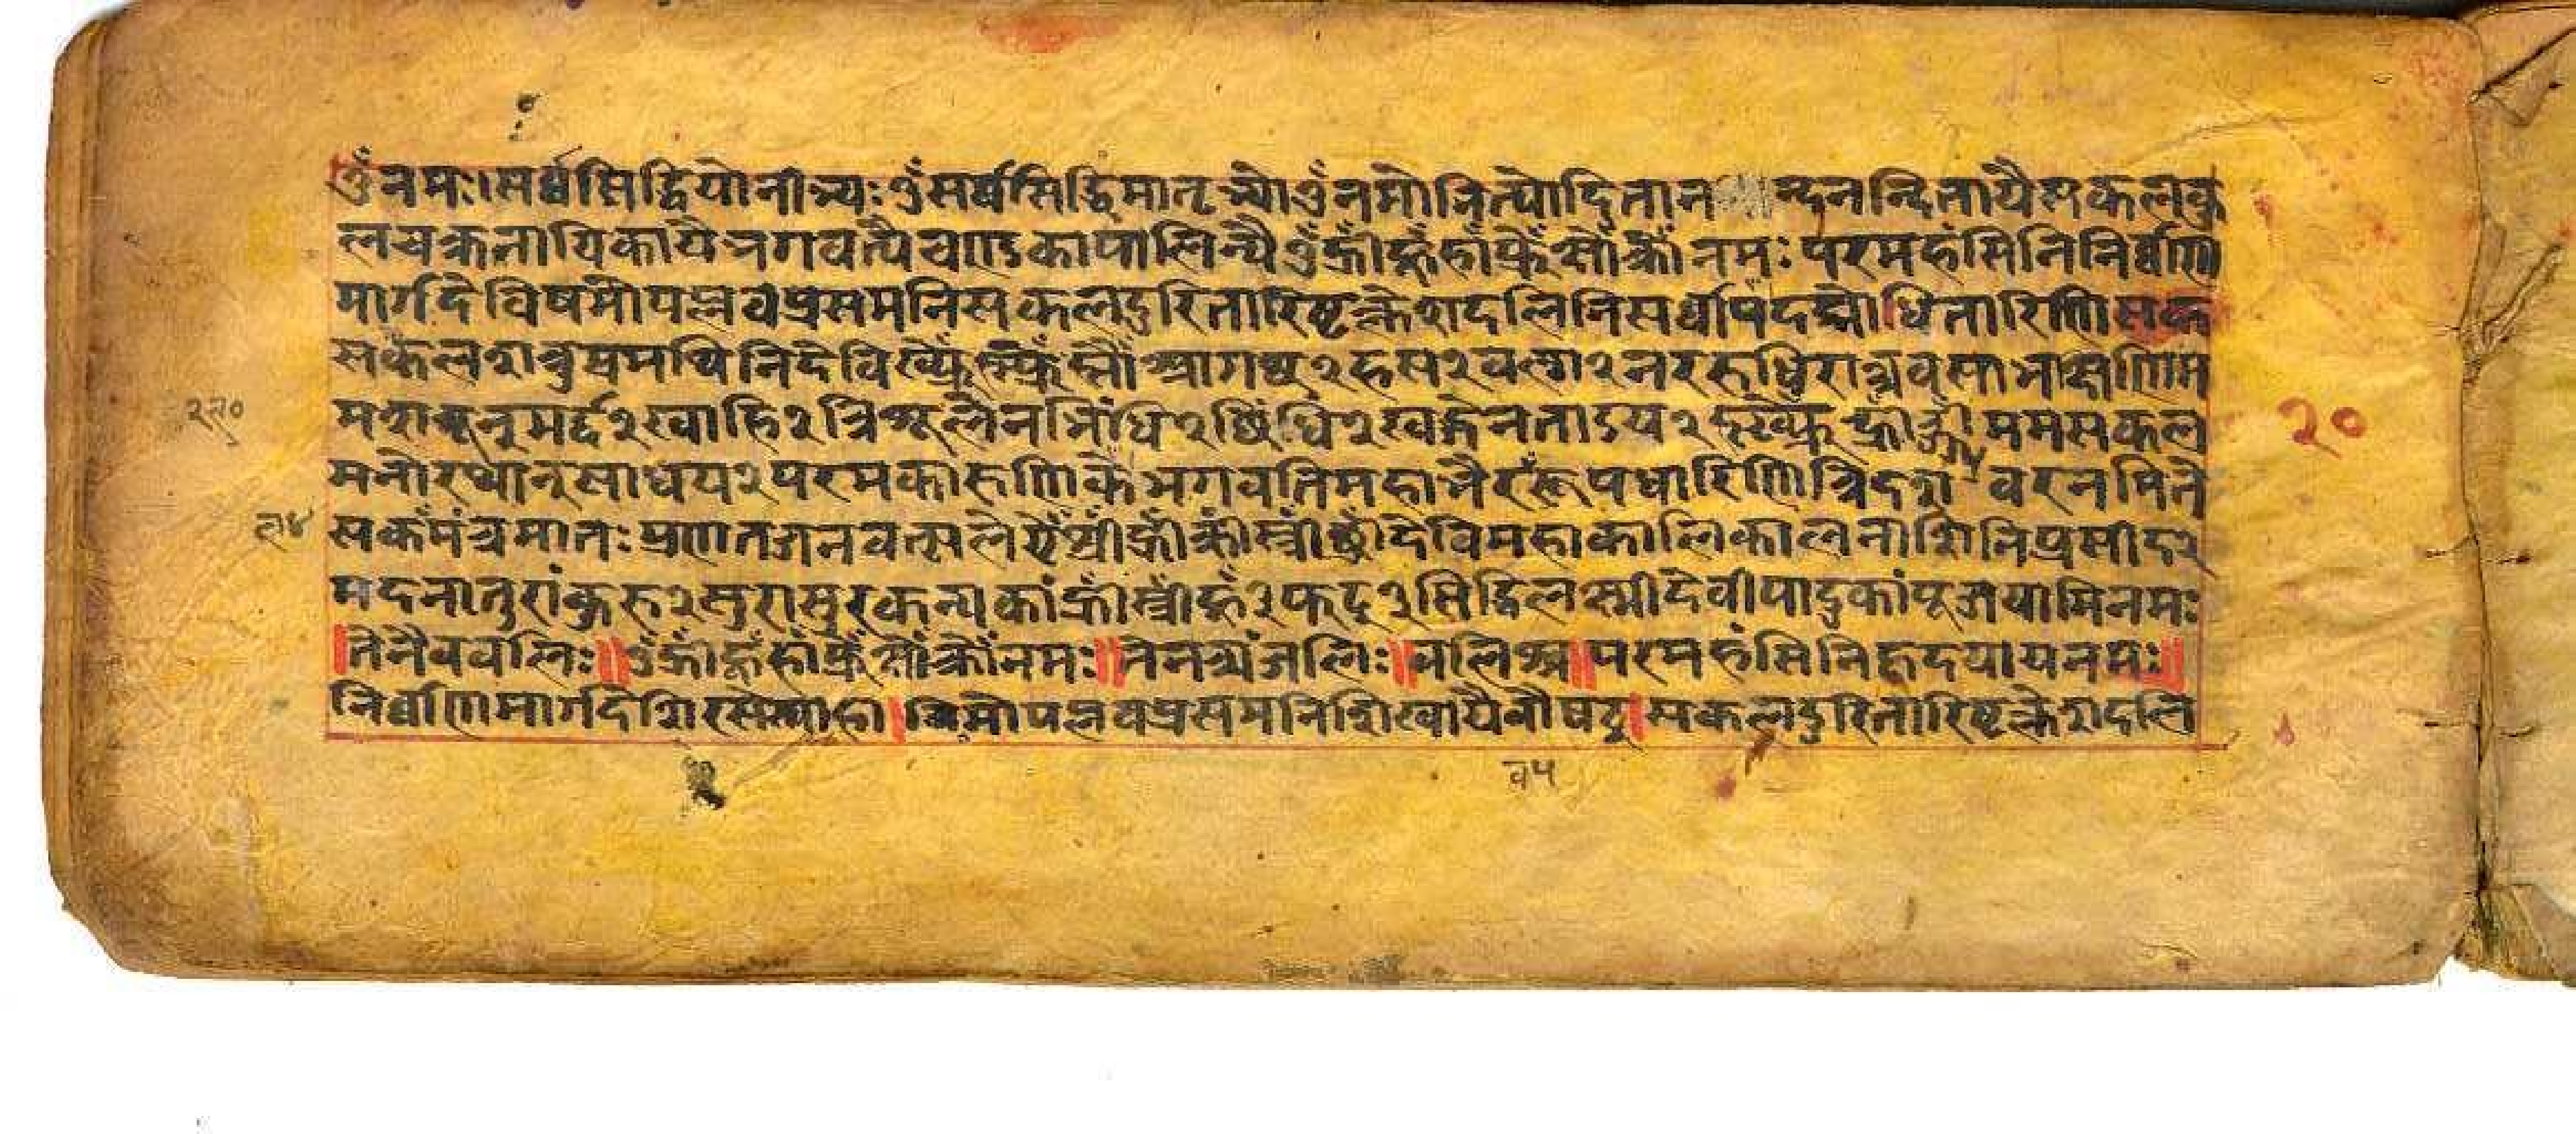 ॐनमः।सर्व्वसिद्धियोनीभ्यःॐसर्व्वसिद्धिमातृभ्योॐनमोनित्योदितान न्दनन्दितायैसकलकु
लचक्रनायिकायैभगवत्यैचण्डकापालिन्यैॐह्रींह्रूंहांफ्रेंक्षोंक्रोंनमःपरमहंसिनिनिर्व्वाण
मार्गदेविषमोपल्लवप्रसमनिसकलदुरितारिष्टक्लेशदलिनिसर्व्वापदम्भोधितारिणिसक
सकलशत्रुप्रमथिनिदेवि आगच्छ२हस२वल्ग२नररुधिरान्त्रवसाभक्षणिम
मशत्रून्मर्द्द२खाहि२त्रिशूलेनभिंधि२छिंधि२खड्गेनताडय२ ममसकल
मनोरथान्साधय२परमकारुणिकेभगवतिमहाभैरवरूपधारिणित्रिदशवरनमिते
सकमंत्रमातःप्रणतजनवत्सले देविमहाकालिकालनाशिनिप्रसीद२
मदनातुरांकुरु२सुरासुरकन्यकांह्रींस्त्रींह्रूं३फट्३सिद्धिलक्ष्मीदेवीपादुकांपूजयामिनमः
तेनैववलिः॥ॐह्रींह्रूंहांफ्रेंक्षोंक्रोंनमः॥तेनत्र्यंजलिः॥वलिश्च॥परमहंसिनिहृदयायनमः॥
निर्व्वाणमार्गदेशिरसेस्वाहा।विषमोपल्लवप्रसमनिशिखायैवौषट्।सकलदुरितारिष्टक्लेशदलि
२०